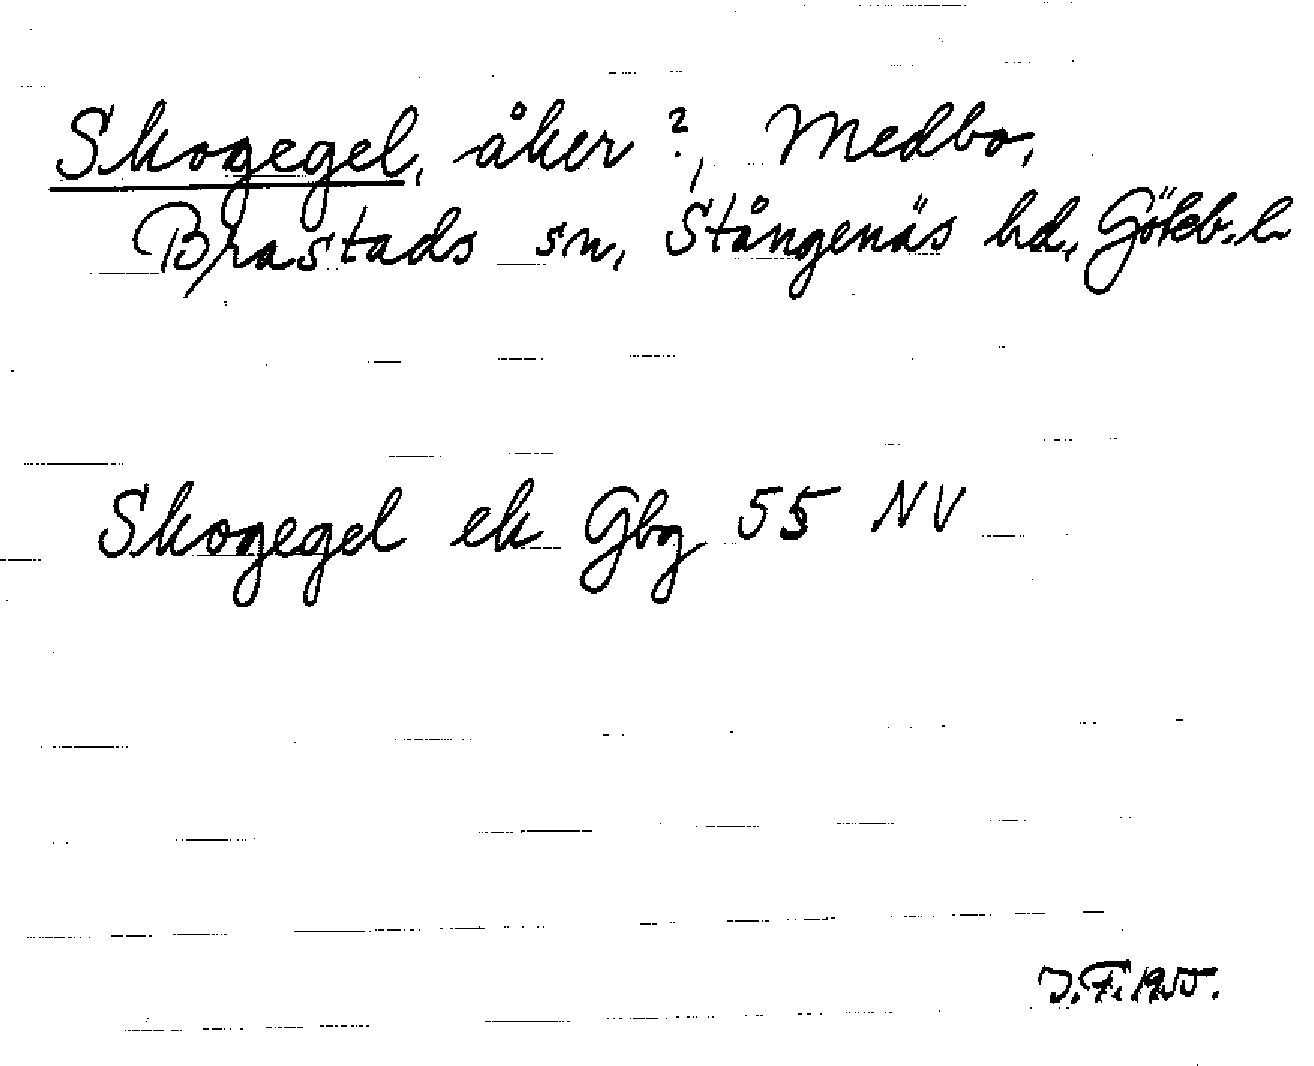 Skogegel, åker ?, Medbo,
Brastads sn, Stångenäs hd, Göteb. l.
Skogegel ek Gbg 55 NV
J. F. 1955.